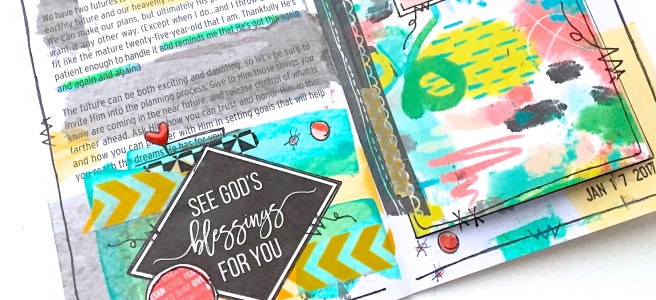 We have two futures
earthly future and our heavenly
We can make our plans, but ultimately His p
want if any other way. (Except when I do...and I throw a
fit like the mature twenty-five-year-old that I am. Thankfully He's
patient enough to handle it and reminds me that He's got this again
and again and again)
The future can be both exciting and daunting, so let's be sure to
invite Him into the planning process. Give to Him those things you
know are coming in the near future, and release control of what is
farther ahead. Ask Him how you can trust and honor Him in this
and how you can partner with Him in setting goals that will help
you reach the dreams He has for you
SEE GOD'S
blessings
FOR YOU
JAN 17 2017